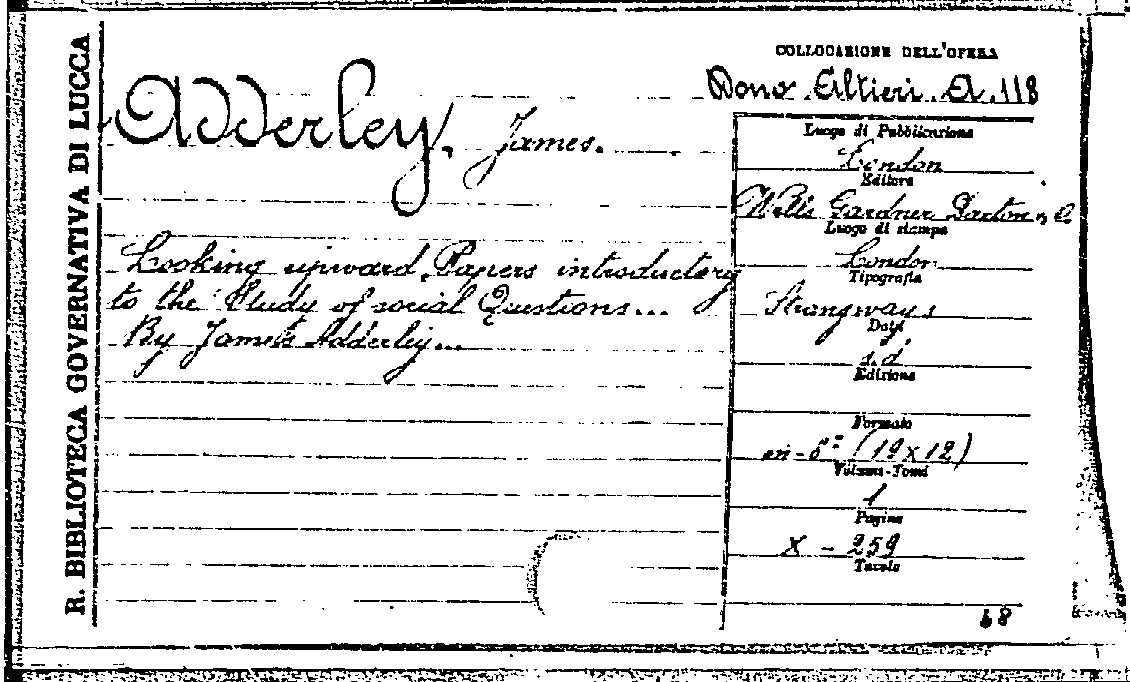 R. BIBLIOTECA GOVERNATIVA DI LUCCA
COLLOCAZIONE DELL'OPERA
Dono Altieri. A. 118
Adderley, James.
Looking upward. Papers introductory
to the Study of social Questions...
By James Adderley...
Luogo di Pubblicazione
London
Editore
Wells Gardner Darton
Luogo di stampa
London
Tipografia
Strangways
Data
s.d.
Edizione
Formato
in-8º (19x12)
Volumi-Tomi
1
Pagine
X - 259
Tavole
68